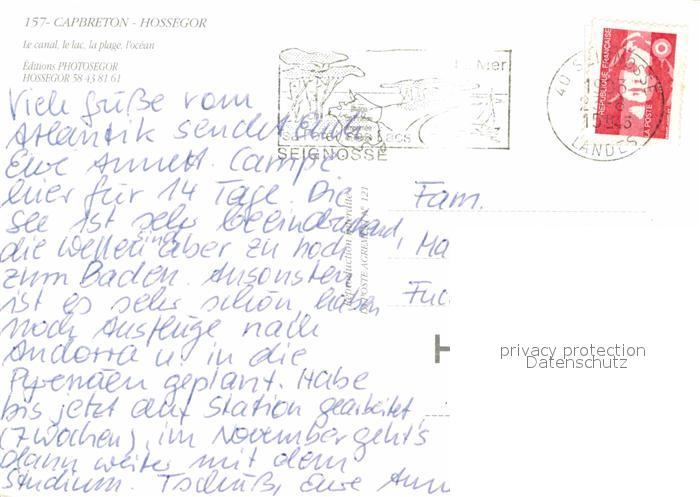 157- CAPBRETON - HOSSEGOR
Le canal, le lac, la plage, l'océan
Éditions PHOTOSEGOR
HOSSEGOR 58 43 81 61
Viele Grüße vom
Atlantik sendet Euch
Eure Annett. Campe
hier für 14 Tage. Die
See ist sehr beeindruckend,
die Wellen aber zu hoch
zum Baden. Ansonsten
ist es sehr schön, haben
noch Ausflüge nach
Andorra u. in die
Pyrenäen geplant. Habe
bis jetzt auf Station gearbeitet
(7 Wochen), im November geht's
dann weiter mit dem
Studium. Tschüß, Eure Ann
La Mer
ses Lacs
SEIGNOSSE
40 SEIGNOSSE
15H
LANDES
RÉPUBLIQUE FRANÇAISE
LA POSTE
Reproduction interdite
LA POSTE AGRÉMENT N° 121
Fam.
Ma
Fuc
privacy protection
Datenschutz